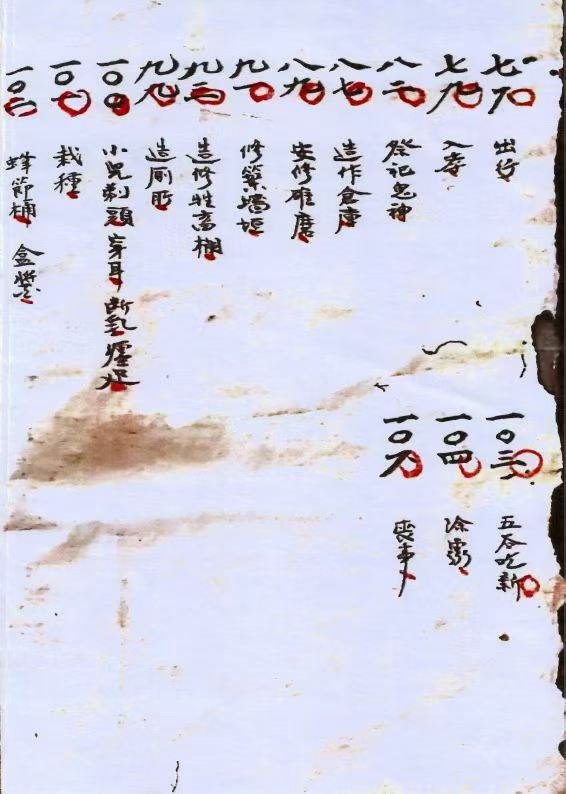 七八 出行
七九 入学
八二 祭祀鬼神
八七 造作仓库
八九 安修碓磨
九一 修築墙垣
九三 造修牲畜棚
九九 造厕所
一〇〇 小兒剃頭穿耳断乳
一〇一 栽種
一〇二 蜂節桶
一〇三 五谷吃新
一〇四 除灵
一〇六 喪事